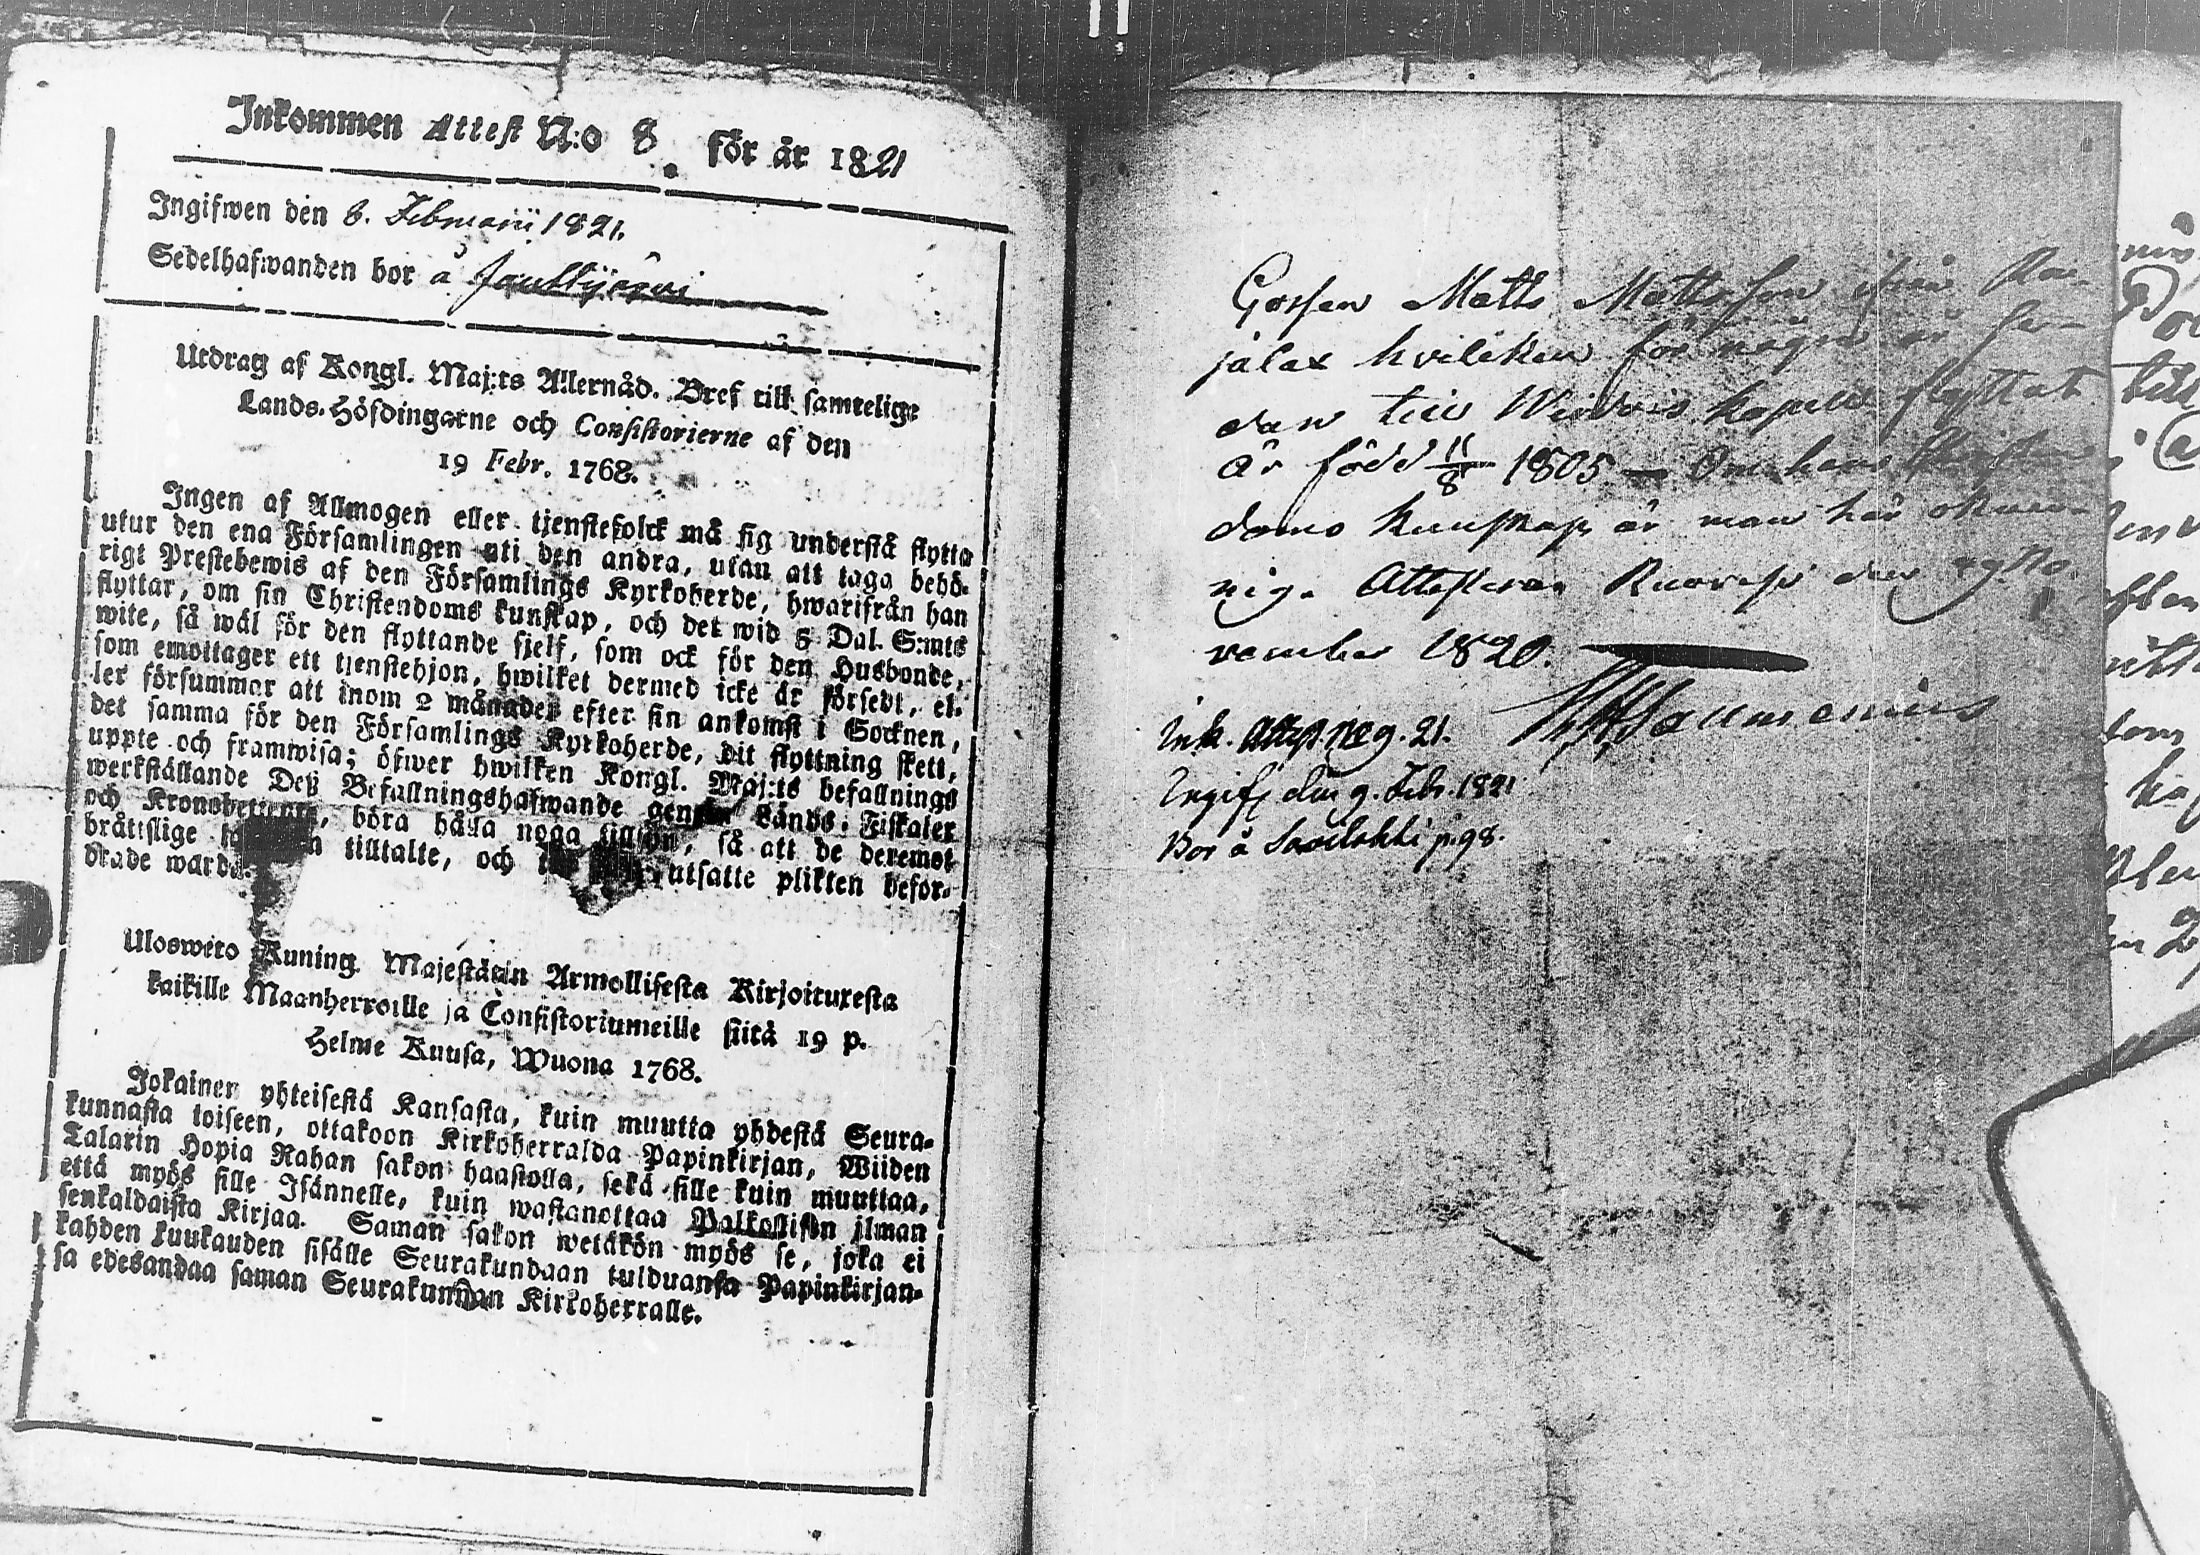 Inkommen Attest N:o 8. för år 1821
Ingifwen den 8. Februarii 1821.
Sedelhafwanden bor å
Utdrag af Kongl. Maj:ts Allernåd. Bref till samtelige
Lands-Höfdingarne och Consistorierne af den
19 Febr. 1768.
Ingen af Allmogen eller tjenstefolck må sig understå flytta
utur den ena Församlingen uti den andra, utan att taga behö-
rigt Prestebewis af den Församlings Kyrkoherde, hwarifrån han
flyttar, om sin Christendoms kunskap, och det wid 5 Dal. S:mts
wite, så wäl för den flyttande sjelf, som ock för den Husbonde,
som emottager ett tjenstehjon, hwilket dermed icke är försedt, el-
ler försummar att inom 2 månader efter sin ankomst i Socknen,
det samma för den Församlings Kyrkoherde, dit flyttning skett,
uppte och framwisa; öfwer hwilken Kongl. Maj:ts befallnings
werkställande Deß Befallningshafwande genom Lands-Fiskaler
och Kronobetjente, böra hålla noga tillsyn, så att de deremot
bråttslige tilltalte, och utsatte plikten befor-
drade warda.
Uloswеto Kuning. Majestätin Armollisesta Kirjoituxesta
kaikille Maanherroille ja Consistoriumeille siitä 19 p.
Helme Kuusa, Wuona 1768.
Jokainen yhteisestä Kansasta, kuin muutta yhdestä Seura-
kunnasta toiseen, ottakoon Kirkoherralda Papinkirjan, Wiiden
Talarin Hopia Rahan sakon haastolla, sekä sille kuin muuttaa,
että myös sille Isännelle, kuin wastanottaa Palkollisen ilman
senkaldaista Kirjaa. Saman sakon wetäkön myös se, joka ei
kahden kuukauden sisälle Seurakundaan tulduansa Papinkirjan-
sa edesandaa saman Seurakunnan Kirkoherralle.
Gossen Matts Mattsson ifrån Ka-
jalax hvilcken för några år se-
dan till Wirdois kapell flyttat
är född 11/8 1805 — Om hans Christen-
doms kunskap är man här okun-
nig. Attesterar Ruovesi den 29 No-
vember 1820.
Ink. Attest N:o 9. 21.
Ingifv. den 9. Febr. 1821
Bor å p. 98.